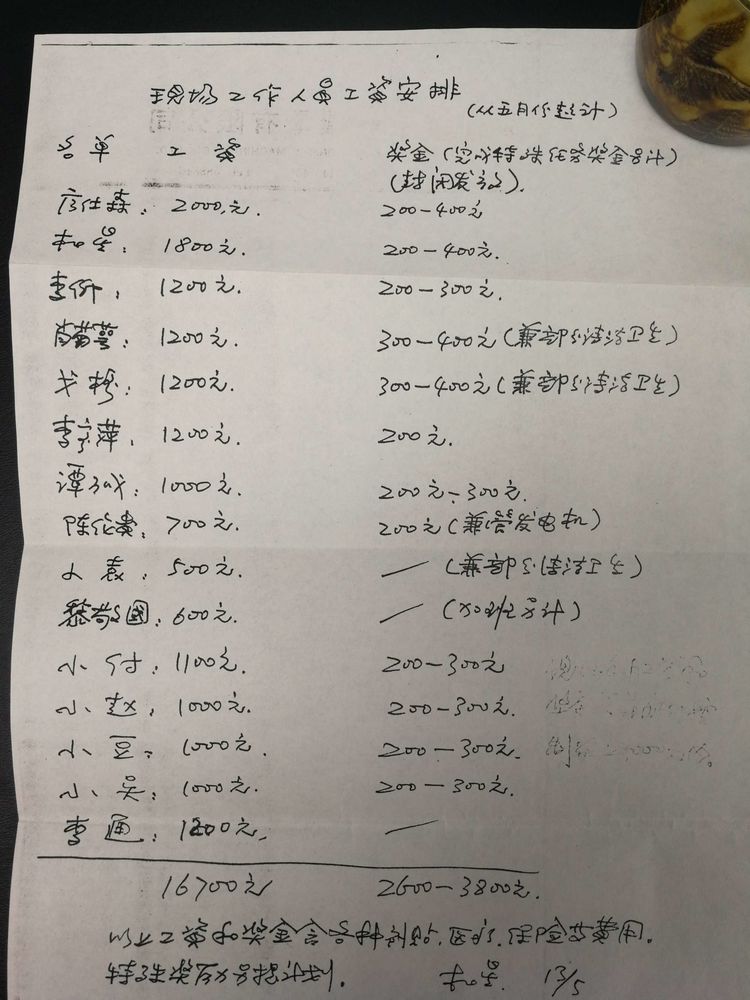 现场工作人员工资安排
(从五月份起计)
名单 工资 奖金(完成特殊任务奖金另计)
(封闭发放).
2000元. 200-400元
1800元. 200-400元.
李 : 1200元. 200-300元.
1200元. 300-400元(兼部分清洁卫生)
1200元. 300-400元(兼部分清洁卫生)
李 萍: 1200元. 200元.
谭 : 1000元. 200元-300元.
陈 : 700元. 200元(兼管发电机)
袁: 500元. / (兼部分清洁卫生)
黎 國: 600元. / (加班另计)
小付: 1100元. 200-300元
小赵: 1000元. 200-300元.
小豆: 1000元. 200-300元.
小吴: 1000元. 200-300元.
李通: 1200元. /
16700元 2600-3800元.
以上工资和奖金含各种补贴.医疗.保险等费用.
特殊奖 另报计划.
13/5